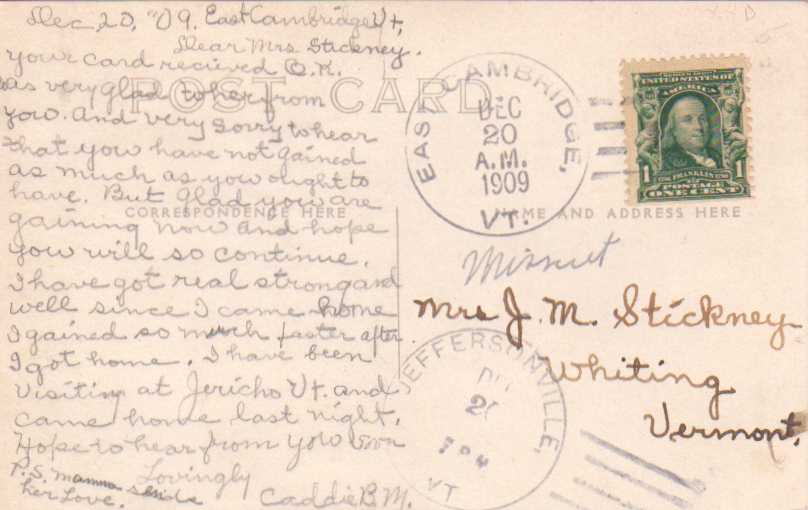 Dec, 20, "09, East Cambridge Vt,
Dear Mrs Stickney.
your card recived O.K.
was very glad to her from
you. And very sorry to hear
that you have not gained
as much as you ought to
have. But glad you are
gaining now and hope
you will so continue.
I have got real strong and
well since I came home
I gained so much faster after
I got home. I have been
visiting at Jericho Vt. and
came home last night.
Hope to hear from you soon
Lovingly
Caddie B. M.
P. S. Mamma sends
her Love.
POST CARD
CORRESPONDENCE HERE
NAME AND ADDRESS HERE
EAST CAMBRIDGE,
DEC
20
A.M.
1909
VT.
UNITED STATES OF
AMERICA
FRANKLIN
1 POSTAGE 1
ONE CENT
Missent
Mrs J. M. Stickney
Whiting
Vermont.
JEFFERSONVILLE,
VT